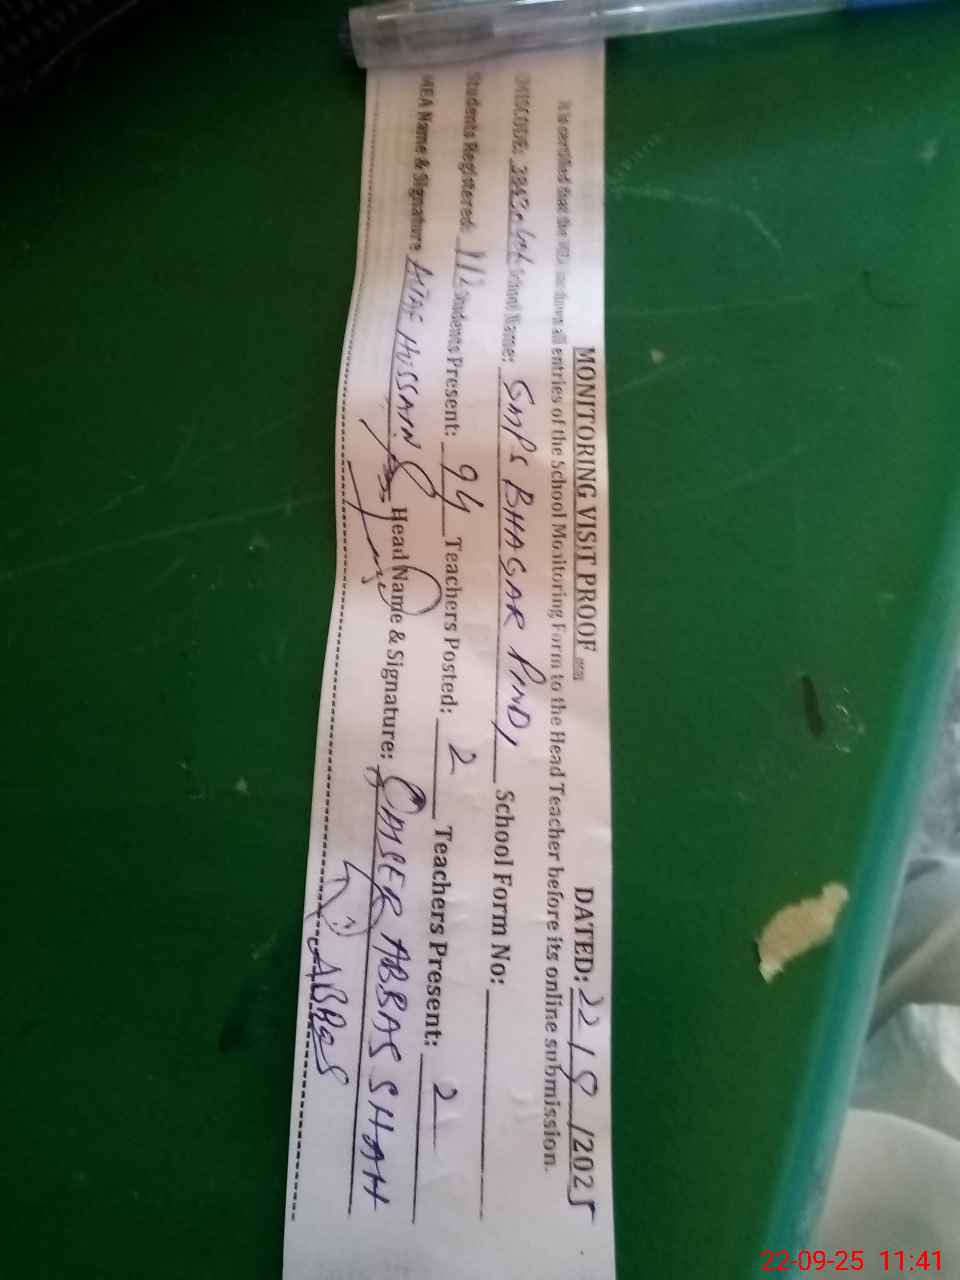 MONITORING VISIT PROOF DATED: 22/9/2025
It is certified that the MEA has shown all entries of the School Monitoring Form to the Head Teacher before its online submission.
School Name: GMPS BHAGAR PINDI School Form No:
Students Registered: 112 Students Present: 94 Teachers Posted: 2 Teachers Present: 2
MEA Name & Signature ALTAF HUSSAIN Head Name & Signature: QAISER ABBAS SHAH
ABBAS
22-09-25 11:41